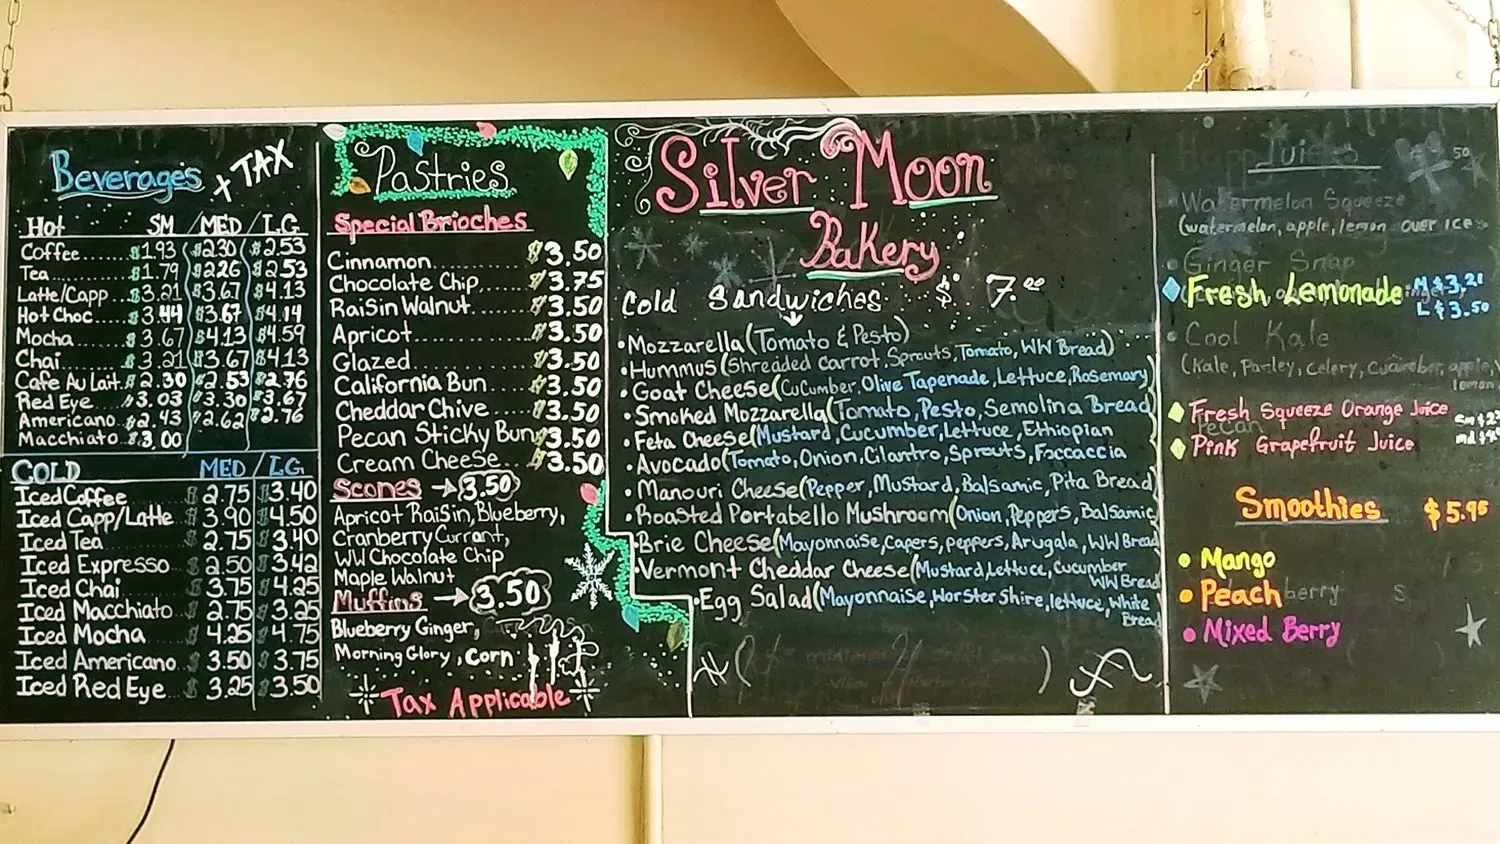 Beverages + TAX
Hot SM / MED / LG
Coffee..... $1.93 $2.30 $2.53
Tea..... $1.79 $2.26 $2.53
Latte/Capp.. $3.21 $3.67 $4.13
Hot Choc.... $3.44 $3.67 $4.14
Mocha..... $3.67 $4.13 $4.59
Chai..... $3.21 $3.67 $4.13
Cafe Au Lait. $2.30 $2.53 $2.76
Red Eye... $3.03 $3.30 $3.67
Americano.. $2.43 $2.62 $2.76
Macchiato. $3.00
COLD MED / LG
Iced Coffee $2.75 $3.40
Iced Capp/Latte $3.90 $4.50
Iced Tea $2.75 $3.40
Iced Expresso $2.50 $3.42
Iced Chai $3.75 $4.25
Iced Macchiato $2.75 $3.25
Iced Mocha $4.25 $4.75
Iced Americano $3.50 $3.75
Iced Red Eye $3.25 $3.50
Pastries
Special Brioches
Cinnamon.......... $3.50
Chocolate Chip...... $3.75
Raisin Walnut....... $3.50
Apricot............ $3.50
Glazed........... $3.50
California Bun..... $3.50
Cheddar Chive..... $3.50
Pecan Sticky Bun $3.50
Cream Cheese... $3.50
Scones → 3.50
Apricot Raisin, Blueberry,
Cranberry Currant,
WW Chocolate Chip
Maple Walnut
Muffins → 3.50
Blueberry Ginger,
Morning Glory, Corn
Tax Applicable
Silver Moon
Bakery
Cold Sandwiches $ 7.00
• Mozzarella (Tomato & Pesto)
• Hummus (Shreaded Carrot, Sprouts, Tomato, WW Bread)
• Goat Cheese (Cucumber, Olive Tapenade, Lettuce, Rosemary
• Smoked Mozzarella (Tomato, Pesto, Semolina Bread
• Feta Cheese (Mustard, Cucumber, Lettuce, Ethiopian
• Avocado (Tomato, Onion, Cilantro, Sprouts, Foccaccia
• Manouri Cheese (Pepper, Mustard, Balsamic, Pita Bread
• Roasted Portabello Mushroom (Onion, Peppers, Balsamic
• Brie Cheese (Mayonnaise, Capers, peppers, Arugala, WW Bread
• Vermont Cheddar Cheese (Mustard, Lettuce, Cucumber
WW Bread
• Egg Salad (Mayonnaise, Worstershire, lettuce, White
Bread
Juices
50
• Watermelon Squeeze
(watermelon, apple, lemon over ice
• Ginger Snap
Fresh Lemonade M $3.21
L $3.50
• Cool Kale
(Kale, Parley, Celery, Cucumber, apple,
lemon
Fresh Squeeze Orange Juice
Pecan
Pink Grapefruit Juice
Smoothies $5.95
• Mango
• Peach
berry
• Mixed Berry